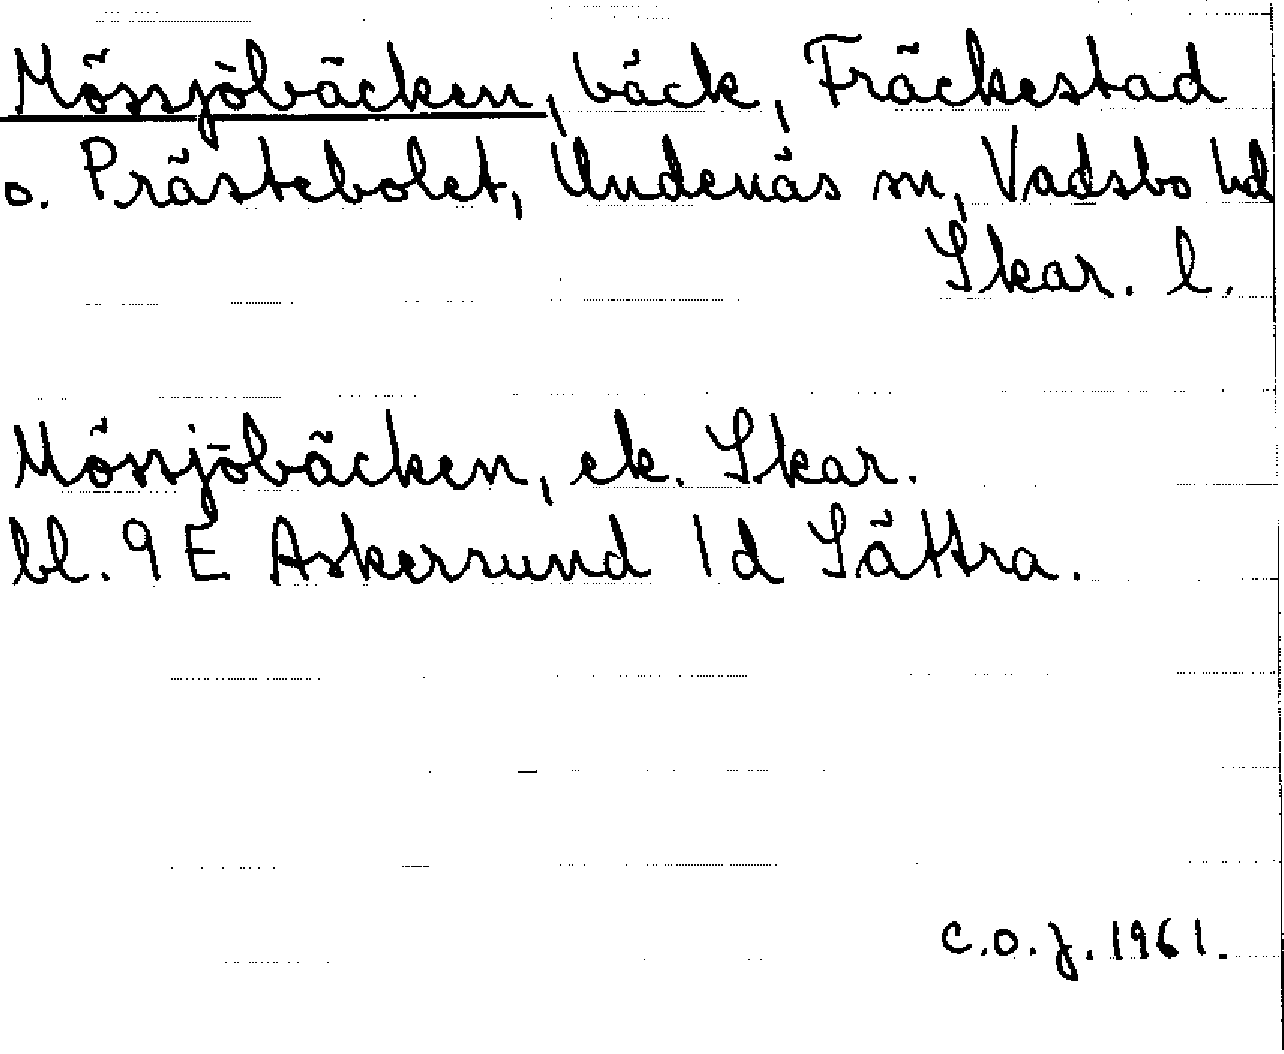 Mössjöbäcken, bäck, Fräckestad
o. Prästebolet, Undenäs sn, Vadsbo hd
Skar. l.
Mössjöbäcken, ek. Skar.
bl. 9 E Askersund 1 d Sättra.
C.O.J. 1961.